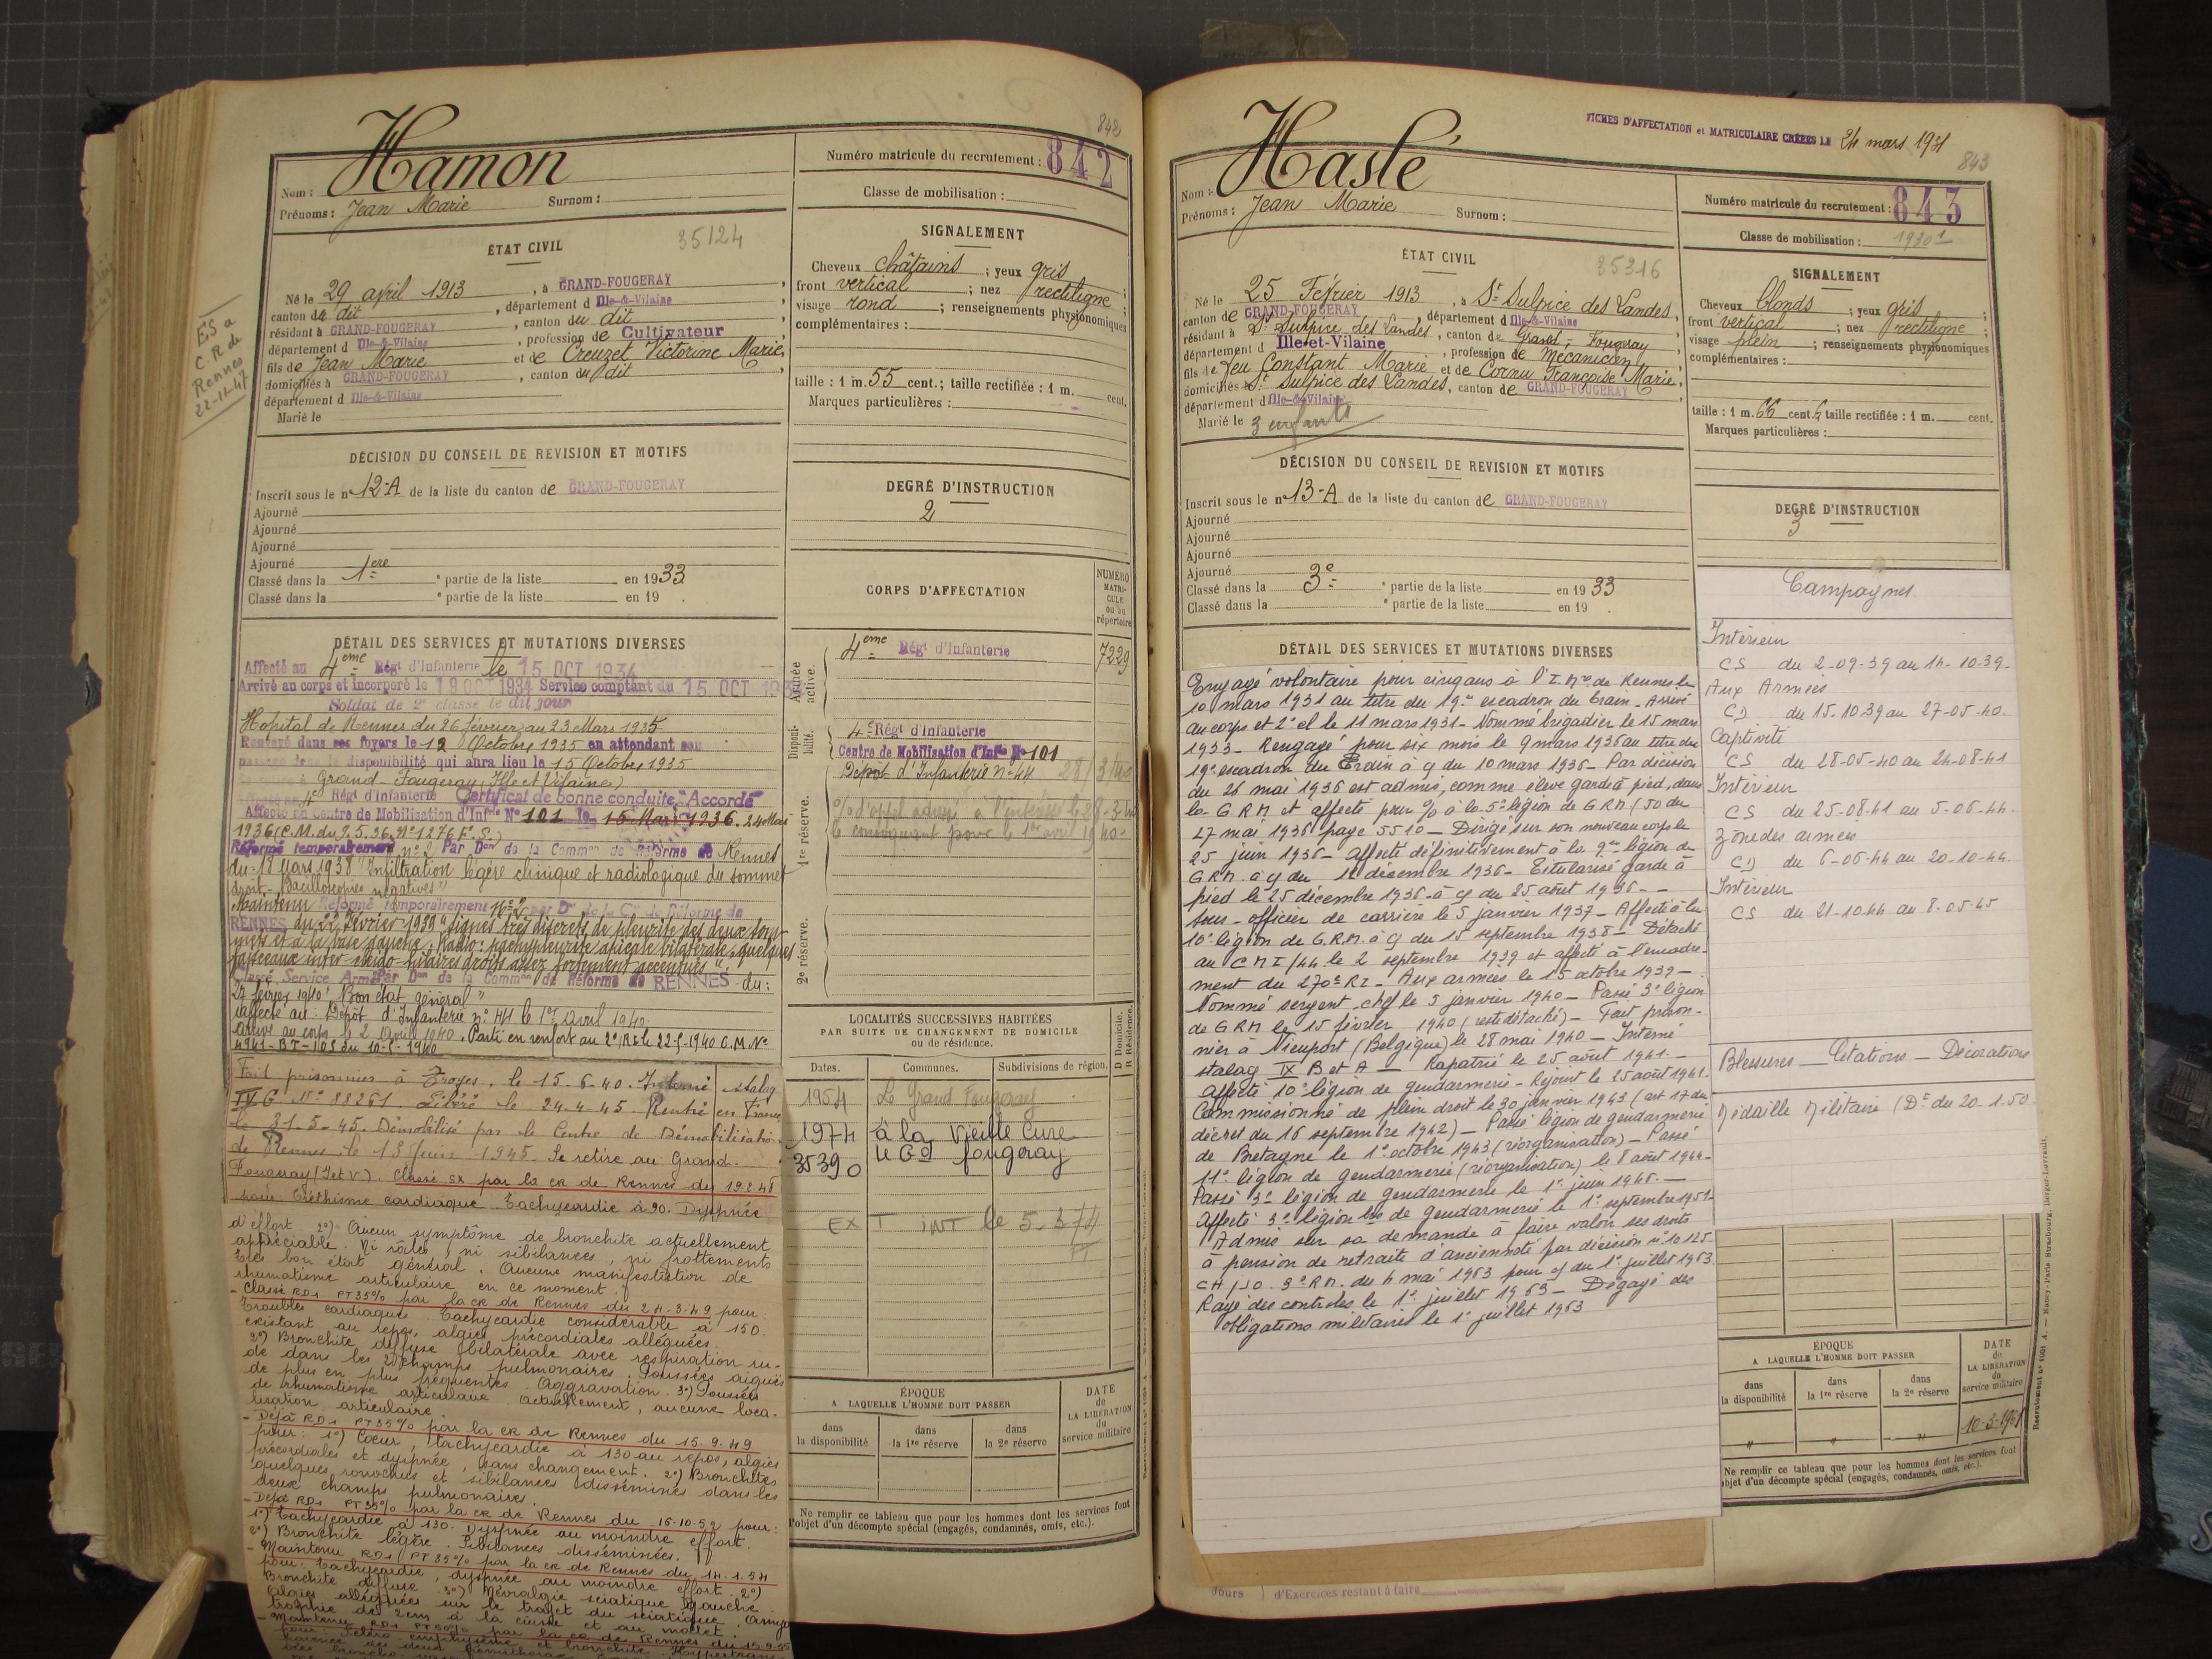 842
Hamon
Nom :
Prénoms : Jean Marie Surnom :
Numéro matricule du recrutement : 842
Classe de mobilisation :
ÉTAT CIVIL
35124
Né le 29 avril 1913, à GRAND-FOUGERAY,
canton du dit, département d Ille-&-Vilaine
résidant à GRAND-FOUGERAY, canton du dit
département d Ille-&-Vilaine, profession de Cultivateur
fils de Jean Marie et de Creuzet Victorine Marie,
domiciliés à GRAND-FOUGERAY, canton du dit
département d Ille-&-Vilaine
Marié le
E.S a
C.R de
Rennes
22-11-47
SIGNALEMENT
Cheveux châtains ; yeux gris
front vertical ; nez rectiligne ;
visage rond ; renseignements physionomiques
complémentaires :
taille : 1 m. 55 cent. ; taille rectifiée : 1 m. cent.
Marques particulières :
DÉCISION DU CONSEIL DE REVISION ET MOTIFS
Inscrit sous le n° 12-A de la liste du canton de GRAND-FOUGERAY
Ajourné
Ajourné
Ajourné
Ajourné
Classé dans la 1ere partie de la liste en 1933
Classé dans la partie de la liste en 19 .
DEGRÉ D'INSTRUCTION
2
DÉTAIL DES SERVICES ET MUTATIONS DIVERSES
Affecté au 4eme Régt d'Infanterie le 15 OCT 1934
Arrivé au corps et incorporé le 19 OCT 1934 Service comptant du 15 OCT 1934
Soldat de 2e classe le dit jour
Hopital de Rennes du 26 février au 23 Mars 1935
Renvoyé dans ses foyers le 12 Octobre 1935 en attendant son
passage dans la disponibilité qui aura lieu le 15 Octobre 1935
Grand-Fougeray (Ille et Vilaine)
4e Régt d'Infanterie Certificat de bonne conduite "Accordé"
Affecté au Centre de Mobilisation d'Infrie N° 101 le 15 Mars 1936. 24 Mai
1936 (C.M. du 9.5.36. N° 1276 F. S.)
Réformé temporairement n° 2 Par Don de la Common de Réforme de Rennes
du 18 Mars 1938 "Infiltration légère clinique et radiologique du sommet
droit - Bacilloscopies négatives"
Maintenu Réformé temporairement N° 2 par Don de la Con de Réforme de
RENNES du 22 Février 1939 "signes très discrets de pleurite des deux som-
mets et à la base gauche. Radio: pachypleurite apicale bilatérale, quelques
Classé Service Armé Par Don de la Common de Réforme de RENNES du:
27 février 1940 "Bon état général"
Affecté au: Dépôt d'Infanterie n° 44 le 1er Avril 1940
Arrivé au corps le 2 Avril 1940. Parti en renfort au 2e RI le 22-5-1940 C.M. N°
4941-BT-105 du 10-5-1940
Fait prisonnier à Troyes. le 15-6-40. Interné stalag
IV G N° 88261 Libéré le 24-4-45. Rentré en France
le 31-5-45. Démobilisé par le Centre de Démobilisation
de Rennes le 13 Juin 1945. Se retire au Grand-
Fougeray (I et V). Classé SX par la CR de Rennes du 19-2-48
pour: Eréthisme cardiaque. Tachycardie à 90. Dyspnée
d'effort 2°) Aucun symptôme de bronchite actuellement
appréciable. Ni râles, ni sibilances, ni frottements
très bon état général. Aucune manifestation de
rhumatisme articulaire en ce moment.
- Classé RD1 PT 35% par la CR de Rennes du 24-3-49 pour:
Troubles cardiaques. Tachycardie considérable à 150
existant au repos, algies précordiales alléguées.
2°) Bronchite diffuse bilatérale avec respiration ru-
de dans les 2 champs pulmonaires. Poussées aigues
de plus en plus fréquentes. Aggravation. 3°) Poussées
de rhumatisme articulaire. Actuellement, aucune loca-
lisation articulaire.
- Déjà RD1 PT 35% par la CR de Rennes du 15.9.49
pour: 1°) Coeur, tachycardie à 130 au repos, algies
précordiales et dyspnée, sans changement. 2°) Bronchites
quelques ronchus et sibilances disséminés dans les
deux champs pulmonaires.
- Déjà RD1 PT 35% par la CR de Rennes du 16-10-52 pour:
1°) Tachycardie à 130. Dyspnée au moindre effort.
2°) Bronchite légère. Sibilances disséminées.
- Maintenu RD1 PT 35% par la CR de Rennes du 14.1.54
pour: Tachycardie, dyspnée au moindre effort. 2°)
Bronchite diffuse. 3°) Névralgie sciatique gauche.
Algies alléguées sur le trajet du sciatique. Amyo-
trophie de 2 cm à la cuisse et au mollet.
- Maintenu RD1 PT 50% par la CR de Rennes du 15-9-55
CORPS D'AFFECTATION
NUMÉRO MATRI- CULE ou au répertoire
Armée active.
4eme Régt d'Infanterie 7229
Disponi- bilité.
4e Régt d'Infanterie
Centre de Mobilisation d'Infie N° 101
1re réserve.
Dépôt d'Infanterie n° 44 28/3/40
le convoquant pour le 1er avril 1940
2e réserve.
LOCALITÉS SUCCESSIVES HABITÉES
PAR SUITE DE CHANGEMENT DE DOMICILE
ou de résidence.
D Domicile. R Résidence.
Dates. Communes. Subdivisions de région.
1954 Le Grand Fougeray
1974 à la Vieille Cure
35390 le Gd fougeray
EXT INT le 5.3.74
ÉPOQUE
A LAQUELLE L'HOMME DOIT PASSER
dans la disponibilité
dans la 1re réserve
dans la 2e réserve
DATE de LA LIBÉRATION du service militaire
Ne remplir ce tableau que pour les hommes dont les services font
l'objet d'un décompte spécial (engagés, condamnés, omis, etc.).
FICHES D'AFFECTATION et MATRICULAIRE CRÉÉES LE 24 mars 1931
843
Haslé
Nom :
Prénoms : Jean Marie Surnom :
Numéro matricule du recrutement : 843
Classe de mobilisation : 1930
ÉTAT CIVIL
35316
Né le 25 Février 1913, à St Sulpice des Landes,
canton de GRAND-FOUGERAY, département d Ille-&-Vilaine
résidant à St Sulpice des Landes, canton de Grand-Fougeray
département d Ille-et-Vilaine, profession de Mécanicien
fils de feu Constant Marie et de Cornu Françoise Marie,
domiciliés à St Sulpice des Landes, canton de GRAND-FOUGERAY
département d Ille-&-Vilaine
Marié le 3 enfants
SIGNALEMENT
Cheveux blonds ; yeux gris ;
front vertical ; nez rectiligne ;
visage plein ; renseignements physionomiques
complémentaires :
taille : 1 m. 66 cent. ; taille rectifiée : 1 m. cent.
Marques particulières :
DÉCISION DU CONSEIL DE REVISION ET MOTIFS
Inscrit sous le n° 13-A de la liste du canton de GRAND-FOUGERAY
Ajourné
Ajourné
Ajourné
Ajourné
Classé dans la 3e partie de la liste en 1933
Classé dans la partie de la liste en 19 .
DEGRÉ D'INSTRUCTION
3
DÉTAIL DES SERVICES ET MUTATIONS DIVERSES
Engagé volontaire pour cinq ans à l'I. Mre de Rennes le
10 mars 1931 au titre du 19e escadron du train - Arrivé
au corps et 2e cl le 11 mars 1931 - Nommé brigadier le 15 mars
1933 - Rengagé pour six mois le 9 mars 1936 au titre du
19e escadron du Train à c/ du 10 mars 1936 - Par décision
du 26 mai 1936 est admis, comme élève garde à pied, dans
la G.R.M et affecté pour % à la 5e légion de G.R.M (JO du
27 mai 1936 page 5510 - Dirigé sur son nouveau corps le
25 juin 1936 - Affecté définitivement à la 9e légion de
G.R.M. à c/ du 1e décembre 1936 - Titularisé garde à
pied le 25 décembre 1936 à c/ du 25 août 1936 -
sous-officier de carrière le 5 janvier 1937 - Affecté à la
10e légion de G.R.M à c/ du 15 septembre 1938 - Détaché
au CMI/44 le 2 septembre 1939 et affecté à l'encadre-
ment du 270e RI - Aux armées le 15 octobre 1939 -
Nommé sergent-chef le 5 janvier 1940 - Passé 3e légion
de GRM le 15 février 1940 (reste détaché) - Fait prison-
nier à Nieuport (Belgique) le 28 mai 1940 - Interné
stalag IX B et A - Rapatrié le 25 août 1941 -
Affecté 10e légion de gendarmerie - Rejoint le 25 août 1941
Commissionné de plein droit le 30 janvier 1943 (art 17 du
décret du 16 septembre 1942) - Passé légion de gendarmerie
de Bretagne le 1e octobre 1943 (réorganisation) - Passé
11e légion de gendarmerie (réorganisation) le 8 août 1944 -
Passé 3e légion de gendarmerie le 1e juin 1946. -
Affecté 3e légion bis de gendarmerie le 1e septembre 1951 -
Admis sur sa demande à faire valoir ses droits
à pension de retraite d'ancienneté par décision n° 10125
CH/JO. 3e R.M. du 4 mai 1963 pour c/ du 1e juillet 1963
Rayé des contrôles le 1e juillet 1963 - Dégagé des
obligations militaires le 1e juillet 1963
Campagnes
Intérieur
CS du 2-09-39 au 14-10-39
Aux Armées
CD du 15-10-39 au 27-05-40
Captivité
CS du 28-05-40 au 24-08-41
Intérieur
CS du 25-08-41 au 5-06-44
Zone des armées
CD du 6-06-44 au 20-10-44
Intérieur
CS du 21-10-44 au 8-05-45
Blessures - Citations - Décorations
Médaille Militaire (Dt du 20-1-50
ÉPOQUE
A LAQUELLE L'HOMME DOIT PASSER
dans la disponibilité
dans la 1re réserve
dans la 2e réserve
DATE de LA LIBÉRATION du service militaire
" " "
Ne remplir ce tableau que pour les hommes dont les services font
objet d'un décompte spécial (engagés, condamnés, omis, etc.).
Jours d'Exercices restant à faire